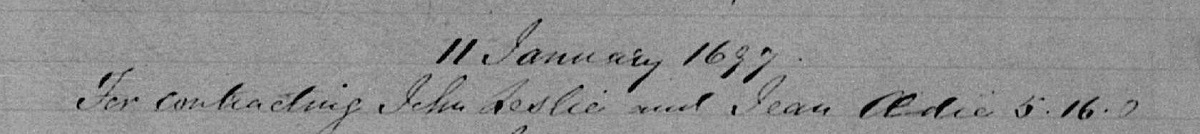 11 January 1697.
For contracting John Leslie and Jean Ædie 5.16.0